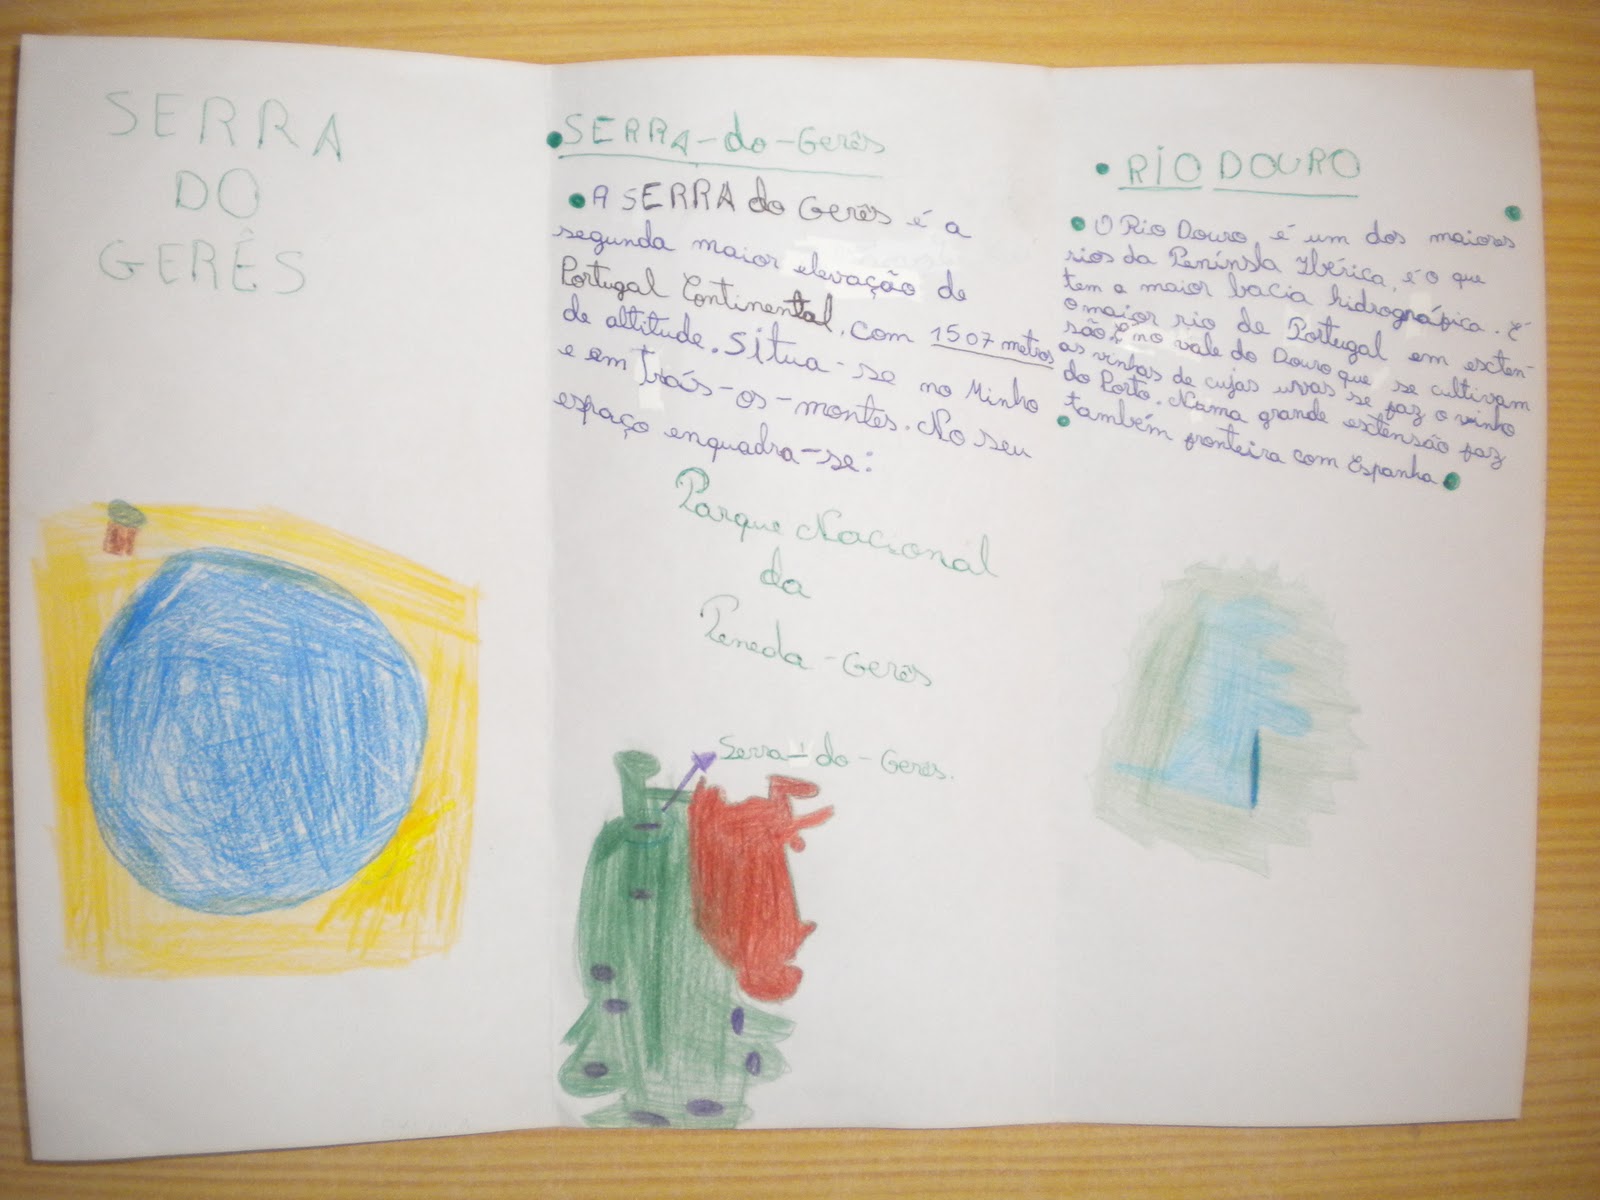 SERRA
DO
GERÊS
SERRA-do-Gerês
A SERRA do Gerês é a
segunda maior elevação de
Portugal Continental, com 1507 metros
de altitude. Situa-se no Minho
e em Trás-os-montes. No seu
espaço enquadra-se:
Parque Nacional
da
Peneda-Gerês
Serra-do-Gerês.
RIO DOURO
O Rio Douro é um dos maiores
rios da Penínsla Ibérica, é o que
tem a maior bacia hidrográfica. É
o maior rio de Portugal em exten-
são. É no vale do Douro que se cultivam
as vinhas de cujas uvas se faz o vinho
do Porto. Numa grande extensão faz
também fronteira com Espanha